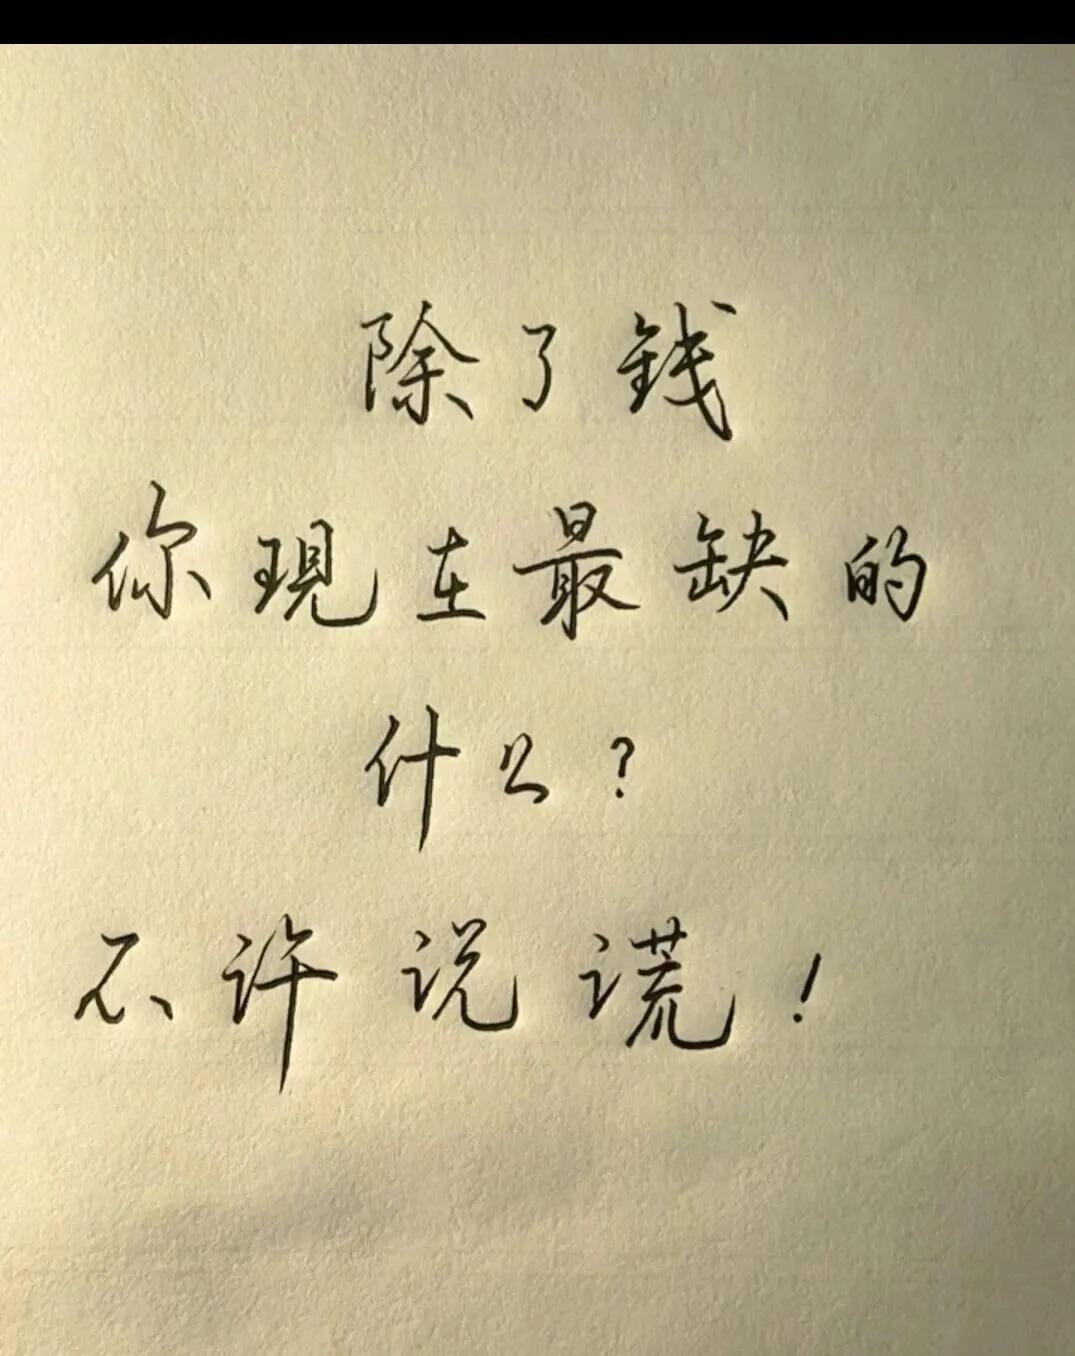 除了钱
你现在最缺的
什么？
不许说谎！